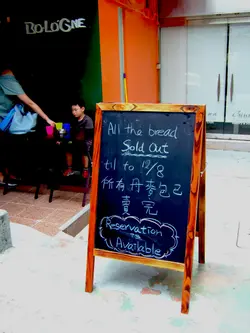 BOLOGNE
All the bread
Sold Out
til to 12/8
所有丹麥包已
賣完
Reservation
Available